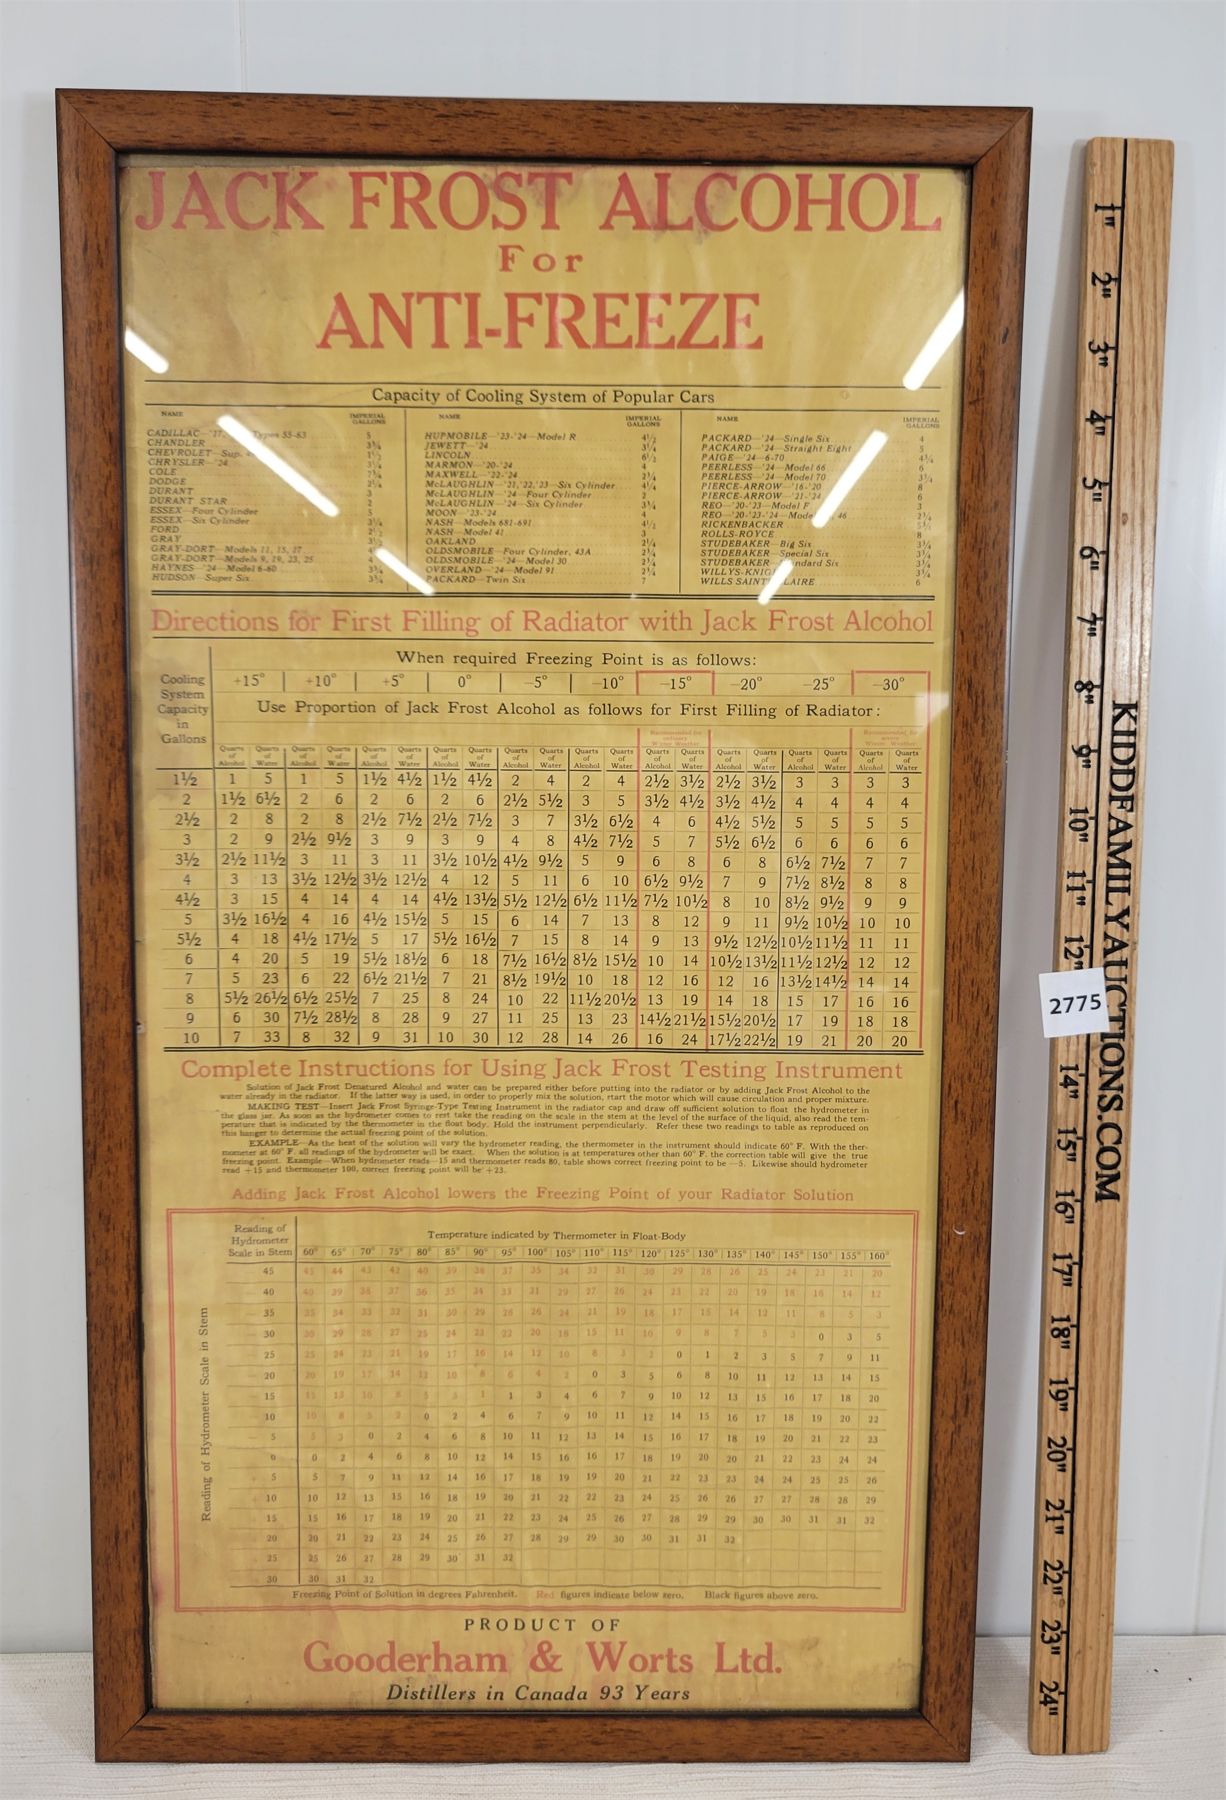 JACK FROST ALCOHOL
For
ANTI-FREEZE
Capacity of Cooling System of Popular Cars
NAME IMPERIAL GALLONS NAME IMPERIAL GALLONS NAME IMPERIAL GALLONS
CADILLAC Types 55-63 5
CHANDLER 3¾
CHEVROLET
CHRYSLER '24
COLE
DODGE
DURANT 3
DURANT STAR 2
ESSEX Four Cylinder 5
ESSEX Six Cylinder
FORD
GRAY
GRAY-DORT Models 11, 15, 17
GRAY-DORT Models 9, 19, 23, 25
HAYNES '24 Model 6-60
HUDSON Super Six 3¾
HUPMOBILE '23-'24 Model R 4½
JEWETT '24
LINCOLN
MARMON '20-'24 4
MAXWELL '22-'24
McLAUGHLIN '21,'22,'23 Six Cylinder
McLAUGHLIN '24 Four Cylinder 2
McLAUGHLIN '24 Six Cylinder
MOON '23-'24 4
NASH Models 681-691 4½
NASH Model 41 3
OAKLAND
OLDSMOBILE Four Cylinder, 43A
OLDSMOBILE '24 Model 30
OVERLAND '24 Model 91
PACKARD Twin Six 7
PACKARD '24 Single Six 4
PACKARD '24 Straight Eight 5
PAIGE '24 6-70
PEERLESS '24 Model 66 6
PEERLESS '24 Model 70
PIERCE-ARROW '16-'20 8
PIERCE-ARROW '21-'24 6
REO '20-'23 Model F 3
REO '20-'23-'24 46
RICKENBACKER
ROLLS-ROYCE 8
STUDEBAKER Big Six
STUDEBAKER Special Six
STUDEBAKER Six
WILLYS-KNIGHT
WILLS SAINT CLAIRE 6
Directions for First Filling of Radiator with Jack Frost Alcohol
Cooling System Capacity in Gallons
When required Freezing Point is as follows:
+15° +10° +5° 0° –5° –10° –15° –20° –25° –30°
Use Proportion of Jack Frost Alcohol as follows for First Filling of Radiator:
Recommended for ordinary Winter Weather Recommended for severe Winter Weather
Quarts of Alcohol Quarts of Water Quarts of Alcohol Quarts of Water Quarts of Alcohol Quarts of Water Quarts of Alcohol Quarts of Water Quarts of Alcohol Quarts of Water Quarts of Alcohol Quarts of Water Quarts of Alcohol Quarts of Water Quarts of Alcohol Quarts of Water Quarts of Alcohol Quarts of Water Quarts of Alcohol Quarts of Water
1½ 1 5 1 5 1½ 4½ 1½ 4½ 2 4 2 4 2½ 3½ 2½ 3½ 3 3 3 3
2 1½ 6½ 2 6 2 6 2 6 2½ 5½ 3 5 3½ 4½ 3½ 4½ 4 4 4 4
2½ 2 8 2 8 2½ 7½ 2½ 7½ 3 7 3½ 6½ 4 6 4½ 5½ 5 5 5 5
3 2 9 2½ 9½ 3 9 3 9 4 8 4½ 7½ 5 7 5½ 6½ 6 6 6 6
3½ 2½ 11½ 3 11 3 11 3½ 10½ 4½ 9½ 5 9 6 8 6 8 6½ 7½ 7 7
4 3 13 3½ 12½ 3½ 12½ 4 12 5 11 6 10 6½ 9½ 7 9 7½ 8½ 8 8
4½ 3 15 4 14 4 14 4½ 13½ 5½ 12½ 6½ 11½ 7½ 10½ 8 10 8½ 9½ 9 9
5 3½ 16½ 4 16 4½ 15½ 5 15 6 14 7 13 8 12 9 11 9½ 10½ 10 10
5½ 4 18 4½ 17½ 5 17 5½ 16½ 7 15 8 14 9 13 9½ 12½ 10½ 11½ 11 11
6 4 20 5 19 5½ 18½ 6 18 7½ 16½ 8½ 15½ 10 14 10½ 13½ 11½ 12½ 12 12
7 5 23 6 22 6½ 21½ 7 21 8½ 19½ 10 18 12 16 12 16 13½ 14½ 14 14
8 5½ 26½ 6½ 25½ 7 25 8 24 10 22 11½ 20½ 13 19 14 18 15 17 16 16
9 6 30 7½ 28½ 8 28 9 27 11 25 13 23 14½ 21½ 15½ 20½ 17 19 18 18
10 7 33 8 32 9 31 10 30 12 28 14 26 16 24 17½ 22½ 19 21 20 20
Complete Instructions for Using Jack Frost Testing Instrument
Solution of Jack Frost Denatured Alcohol and water can be prepared either before putting into the radiator or by adding Jack Frost Alcohol to the
water already in the radiator. If the latter way is used, in order to properly mix the solution, start the motor which will cause circulation and proper mixture.
MAKING TEST—Insert Jack Frost Syringe-Type Testing Instrument in the radiator cap and draw off sufficient solution to float the hydrometer in
the glass jar. As soon as the hydrometer comes to rest take the reading on the scale in the stem at the level of the surface of the liquid, also read the tem-
perature that is indicated by the thermometer in the float body. Hold the instrument perpendicularly. Refer these two readings to table as reproduced on
this hanger to determine the actual freezing point of the solution.
EXAMPLE—As the heat of the solution will vary the hydrometer reading, the thermometer in the instrument should indicate 60° F. With the ther-
mometer at 60° F. all readings of the hydrometer will be exact. When the solution is at temperatures other than 60° F. the correction table will give the true
freezing point. Example—When hydrometer reads —15 and thermometer reads 80, table shows correct freezing point to be —5. Likewise should hydrometer
read +15 and thermometer 100, correct freezing point will be +23.
Adding Jack Frost Alcohol lowers the Freezing Point of your Radiator Solution
Reading of Hydrometer Scale in Stem
Temperature indicated by Thermometer in Float-Body
60° 65° 70° 75° 80° 85° 90° 95° 100° 105° 110° 115° 120° 125° 130° 135° 140° 145° 150° 155° 160°
Reading of Hydrometer Scale in Stem
45 45 44 43 42 40 39 38 37 35 34 32 31 30 29 28 26 25 24 23 21 20
40 40 39 38 37 36 35 34 33 31 29 27 26 24 23 22 20 19 18 16 14 12
35 35 34 33 32 31 30 29 28 26 24 21 19 18 17 15 14 12 11 8 5 3
30 30 29 28 27 25 24 23 22 20 18 15 11 10 9 8 7 5 3 0 3 5
25 25 24 23 21 19 17 16 14 12 10 8 3 2 0 1 2 3 5 7 9 11
20 20 19 17 14 12 10 8 6 4 2 0 3 5 6 8 10 11 12 13 14 15
15 15 13 10 8 5 3 1 1 3 4 6 7 9 10 12 13 15 16 17 18 20
10 10 8 5 2 0 2 4 6 7 9 10 11 12 14 15 16 17 18 19 20 22
5 5 3 0 2 4 6 8 10 11 12 13 14 15 16 17 18 19 20 21 22 23
0 0 2 4 6 8 10 12 14 15 16 16 17 18 19 20 20 21 22 23 24 24
5 5 7 9 11 12 14 16 17 18 19 19 20 21 22 23 23 24 24 25 25 26
10 10 12 13 15 16 18 19 20 21 22 22 23 24 25 26 26 27 27 28 28 29
15 15 16 17 18 19 20 21 22 23 24 25 26 27 28 29 29 30 30 31 31 32
20 20 21 22 23 24 25 26 27 28 29 29 30 30 31 31 32
25 25 26 27 28 29 30 31 32
30 30 31 32
Freezing Point of Solution in degrees Fahrenheit. Red figures indicate below zero. Black figures above zero.
PRODUCT OF
Gooderham & Worts Ltd.
Distillers in Canada 93 Years
1" 2" 3" 4" 5" 6" 7" 8" 9" 10" 11" 12" 14" 15" 16" 17" 18" 19" 20" 21" 22" 23" 24"
KIDDFAMILYAUCTIONS.COM
2775